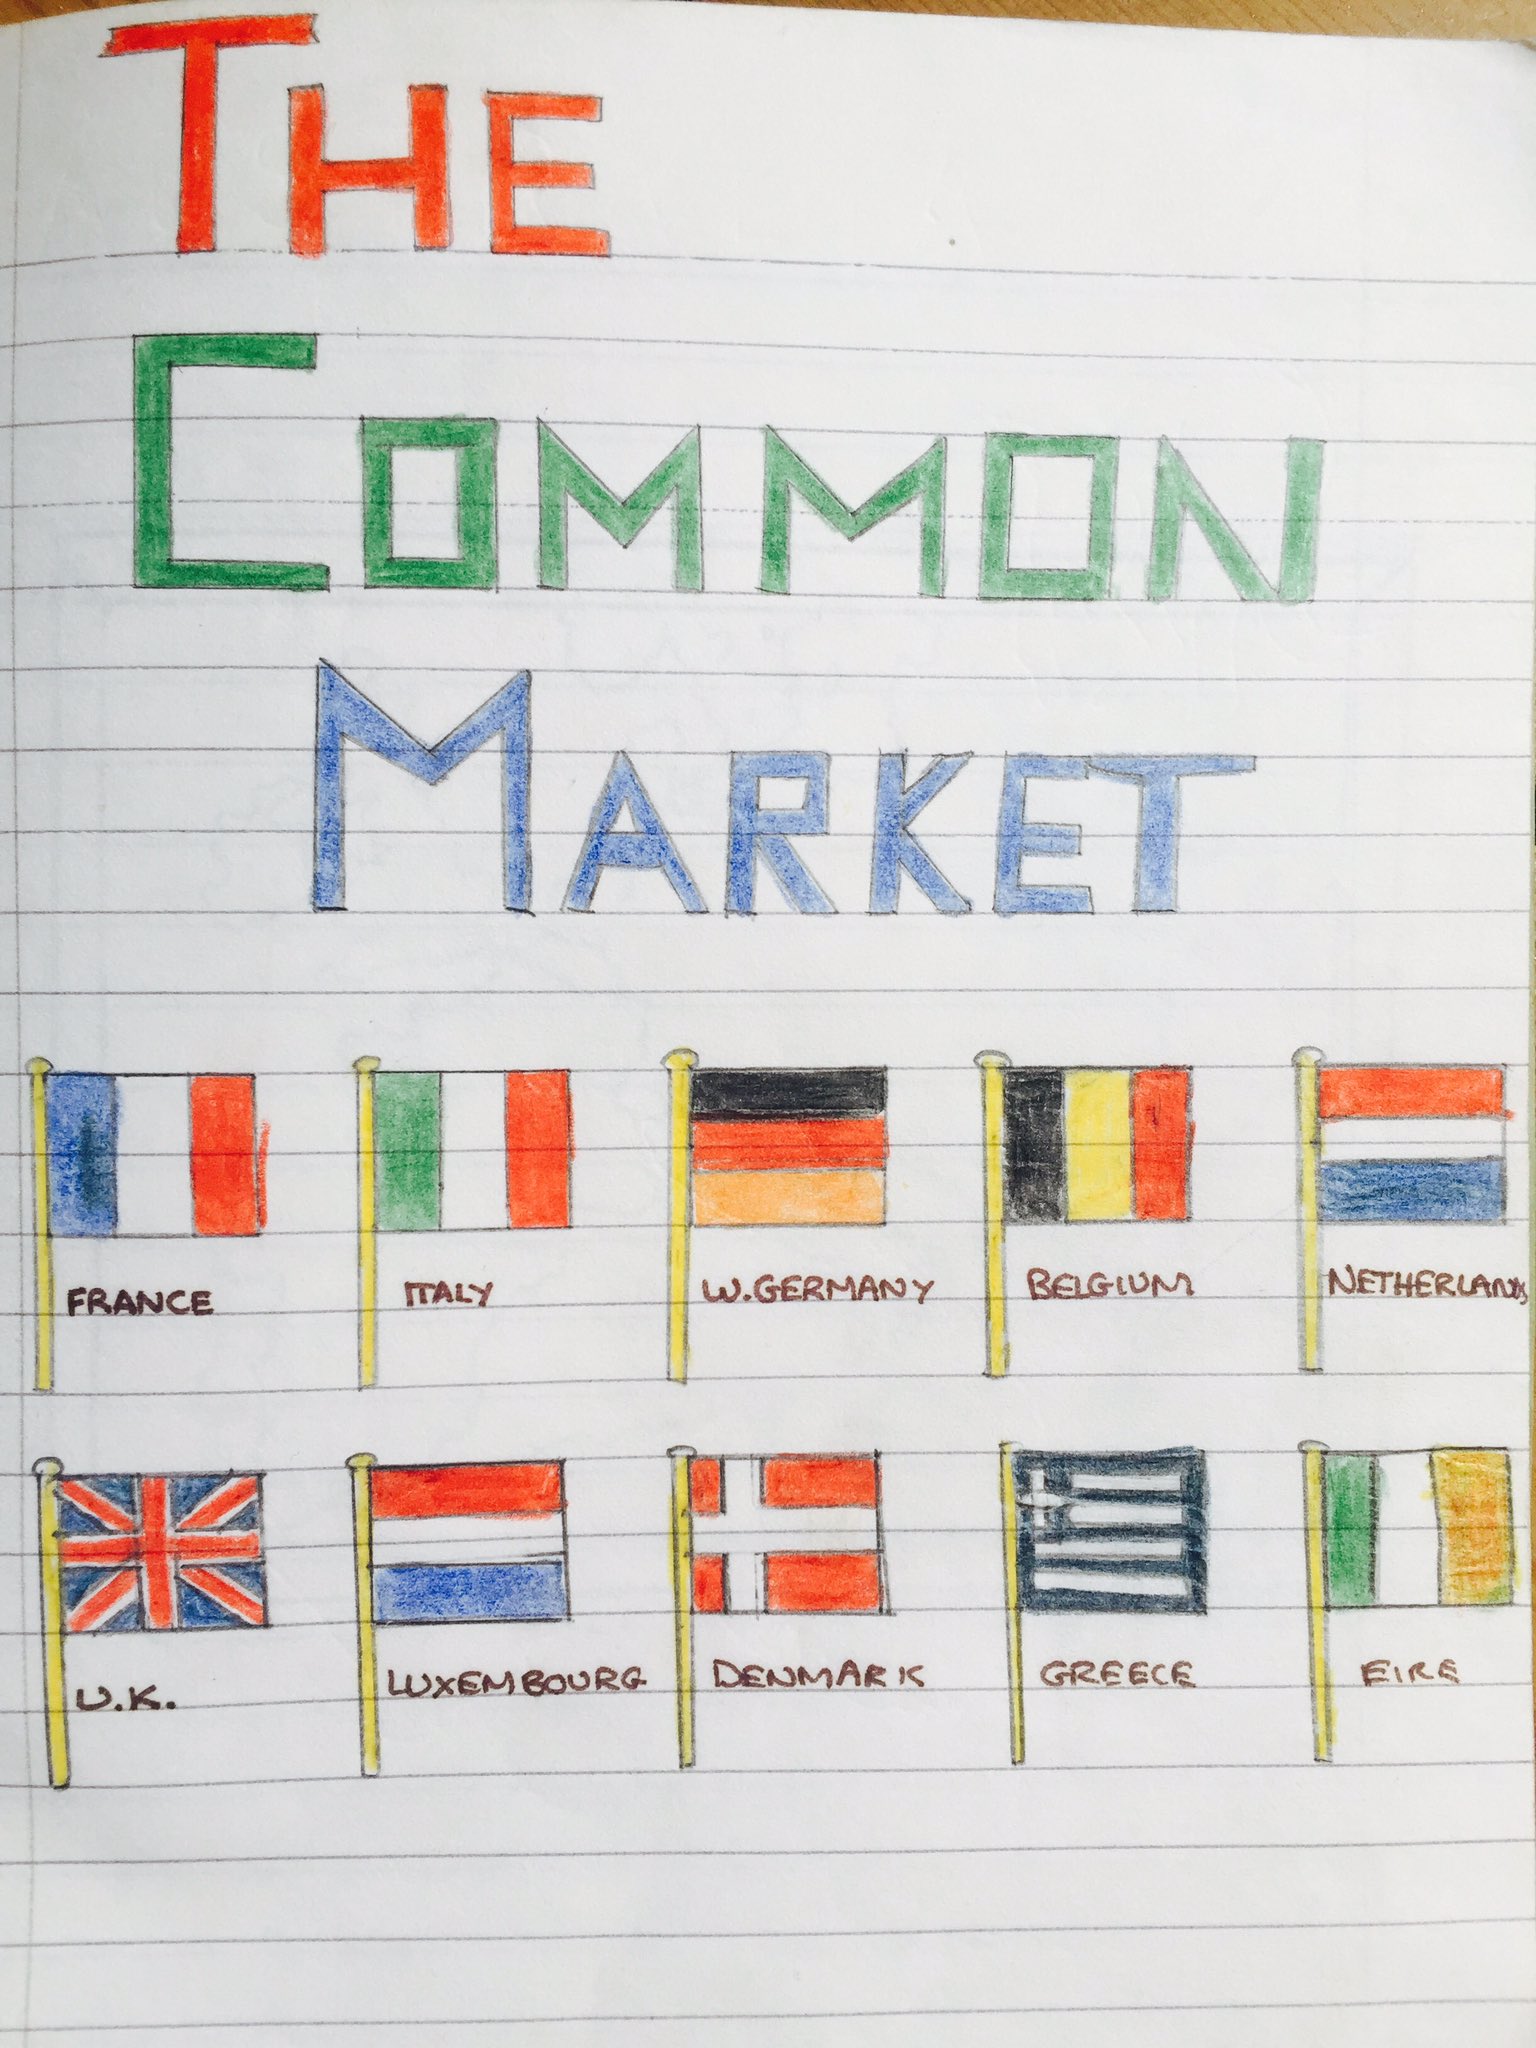 THE
COMMON
MARKET
FRANCE ITALY W.GERMANY BELGIUM NETHERLANDS
U.K. LUXEMBOURG DENMARK GREECE EIRE